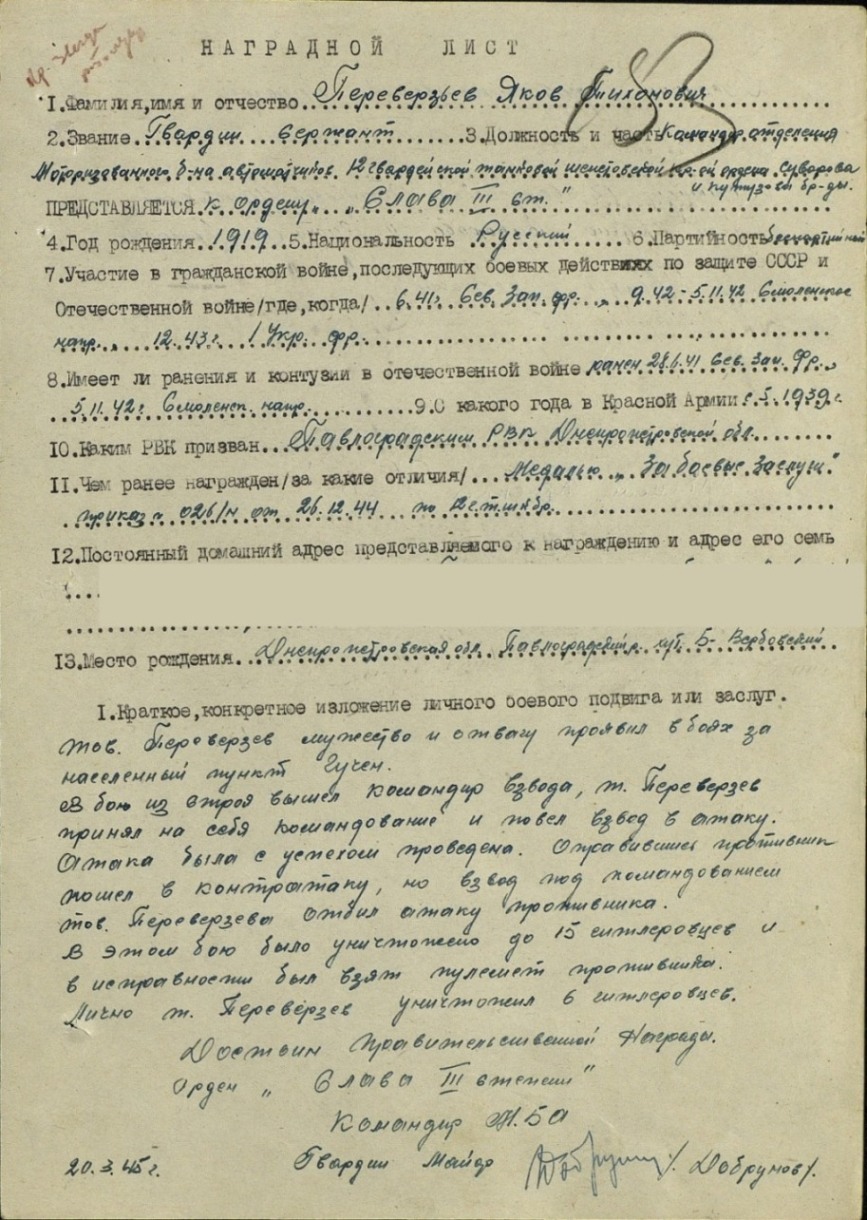 НАГРАДНОЙ ЛИСТ
1.Фамилия,имя и отчество Переверзьев Яков Тихонович
2.Звание Гвардии сержант 3.Должность и часть Командир отделения
Моторизованного б-на автоматчиков 12 гвардейской танковой Шепетовской ордена Суворова
и Кутузова бр-ды.
ПРЕДСТАВЛЯЕТСЯ к ордену „Слава III ст."
4.Год рождения 1919 5.Национальность Русский 6.Партийность беспартийный
7.Участие в гражданской войне,последующих боевых действиях по защите СССР и
Отечественной войне/где,когда/ 6.41г. Сев. Зап. фр., 9.42-5.11.42 Смоленское
напр., 12.43г. 1 Укр. фр.
8.Имеет ли ранения и контузии в отечественной войне ранен 28.6.41 Сев. Зап. Фр.,
5.11.42г. Смоленск. напр. 9.С какого года в Красной Армии с 5.1939г.
10.Каким РВК призван Павлоградским РВК Днепропетровской обл.
11.Чем ранее награжден/за какие отличия/ Медалью „За боевые заслуги"
приказ № 026/н от 26.12.44 по 12
12.Постоянный домашний адрес представляемого к награждению и адрес его семь
13.Место рождения Днепропетровская обл. Павлоградский р. хут. Б-Вербовский
1.Краткое,конкретное изложение личного боевого подвига или заслуг.
тов. Переверзев мужество и отвагу проявил в боях за
населенный пункт Гучен.
В бою из строя вышел командир взвода, т. Переверзев
принял на себя командование и повел взвод в атаку.
Атака была с успехом проведена. Оправившись противник
пошел в контратаку, но взвод под командованием
тов. Переверзева отбил атаку противника.
В этом бою было уничтожено до 15 гитлеровцев и
в исправности был взят пулемет противника.
Лично т. Переверзев уничтожил 6 гитлеровцев.
Достоин Правительственной Награды.
Орден „Слава III степени"
Командир М.БА
20.3.45г. Гвардии Майор /Добрунов/.